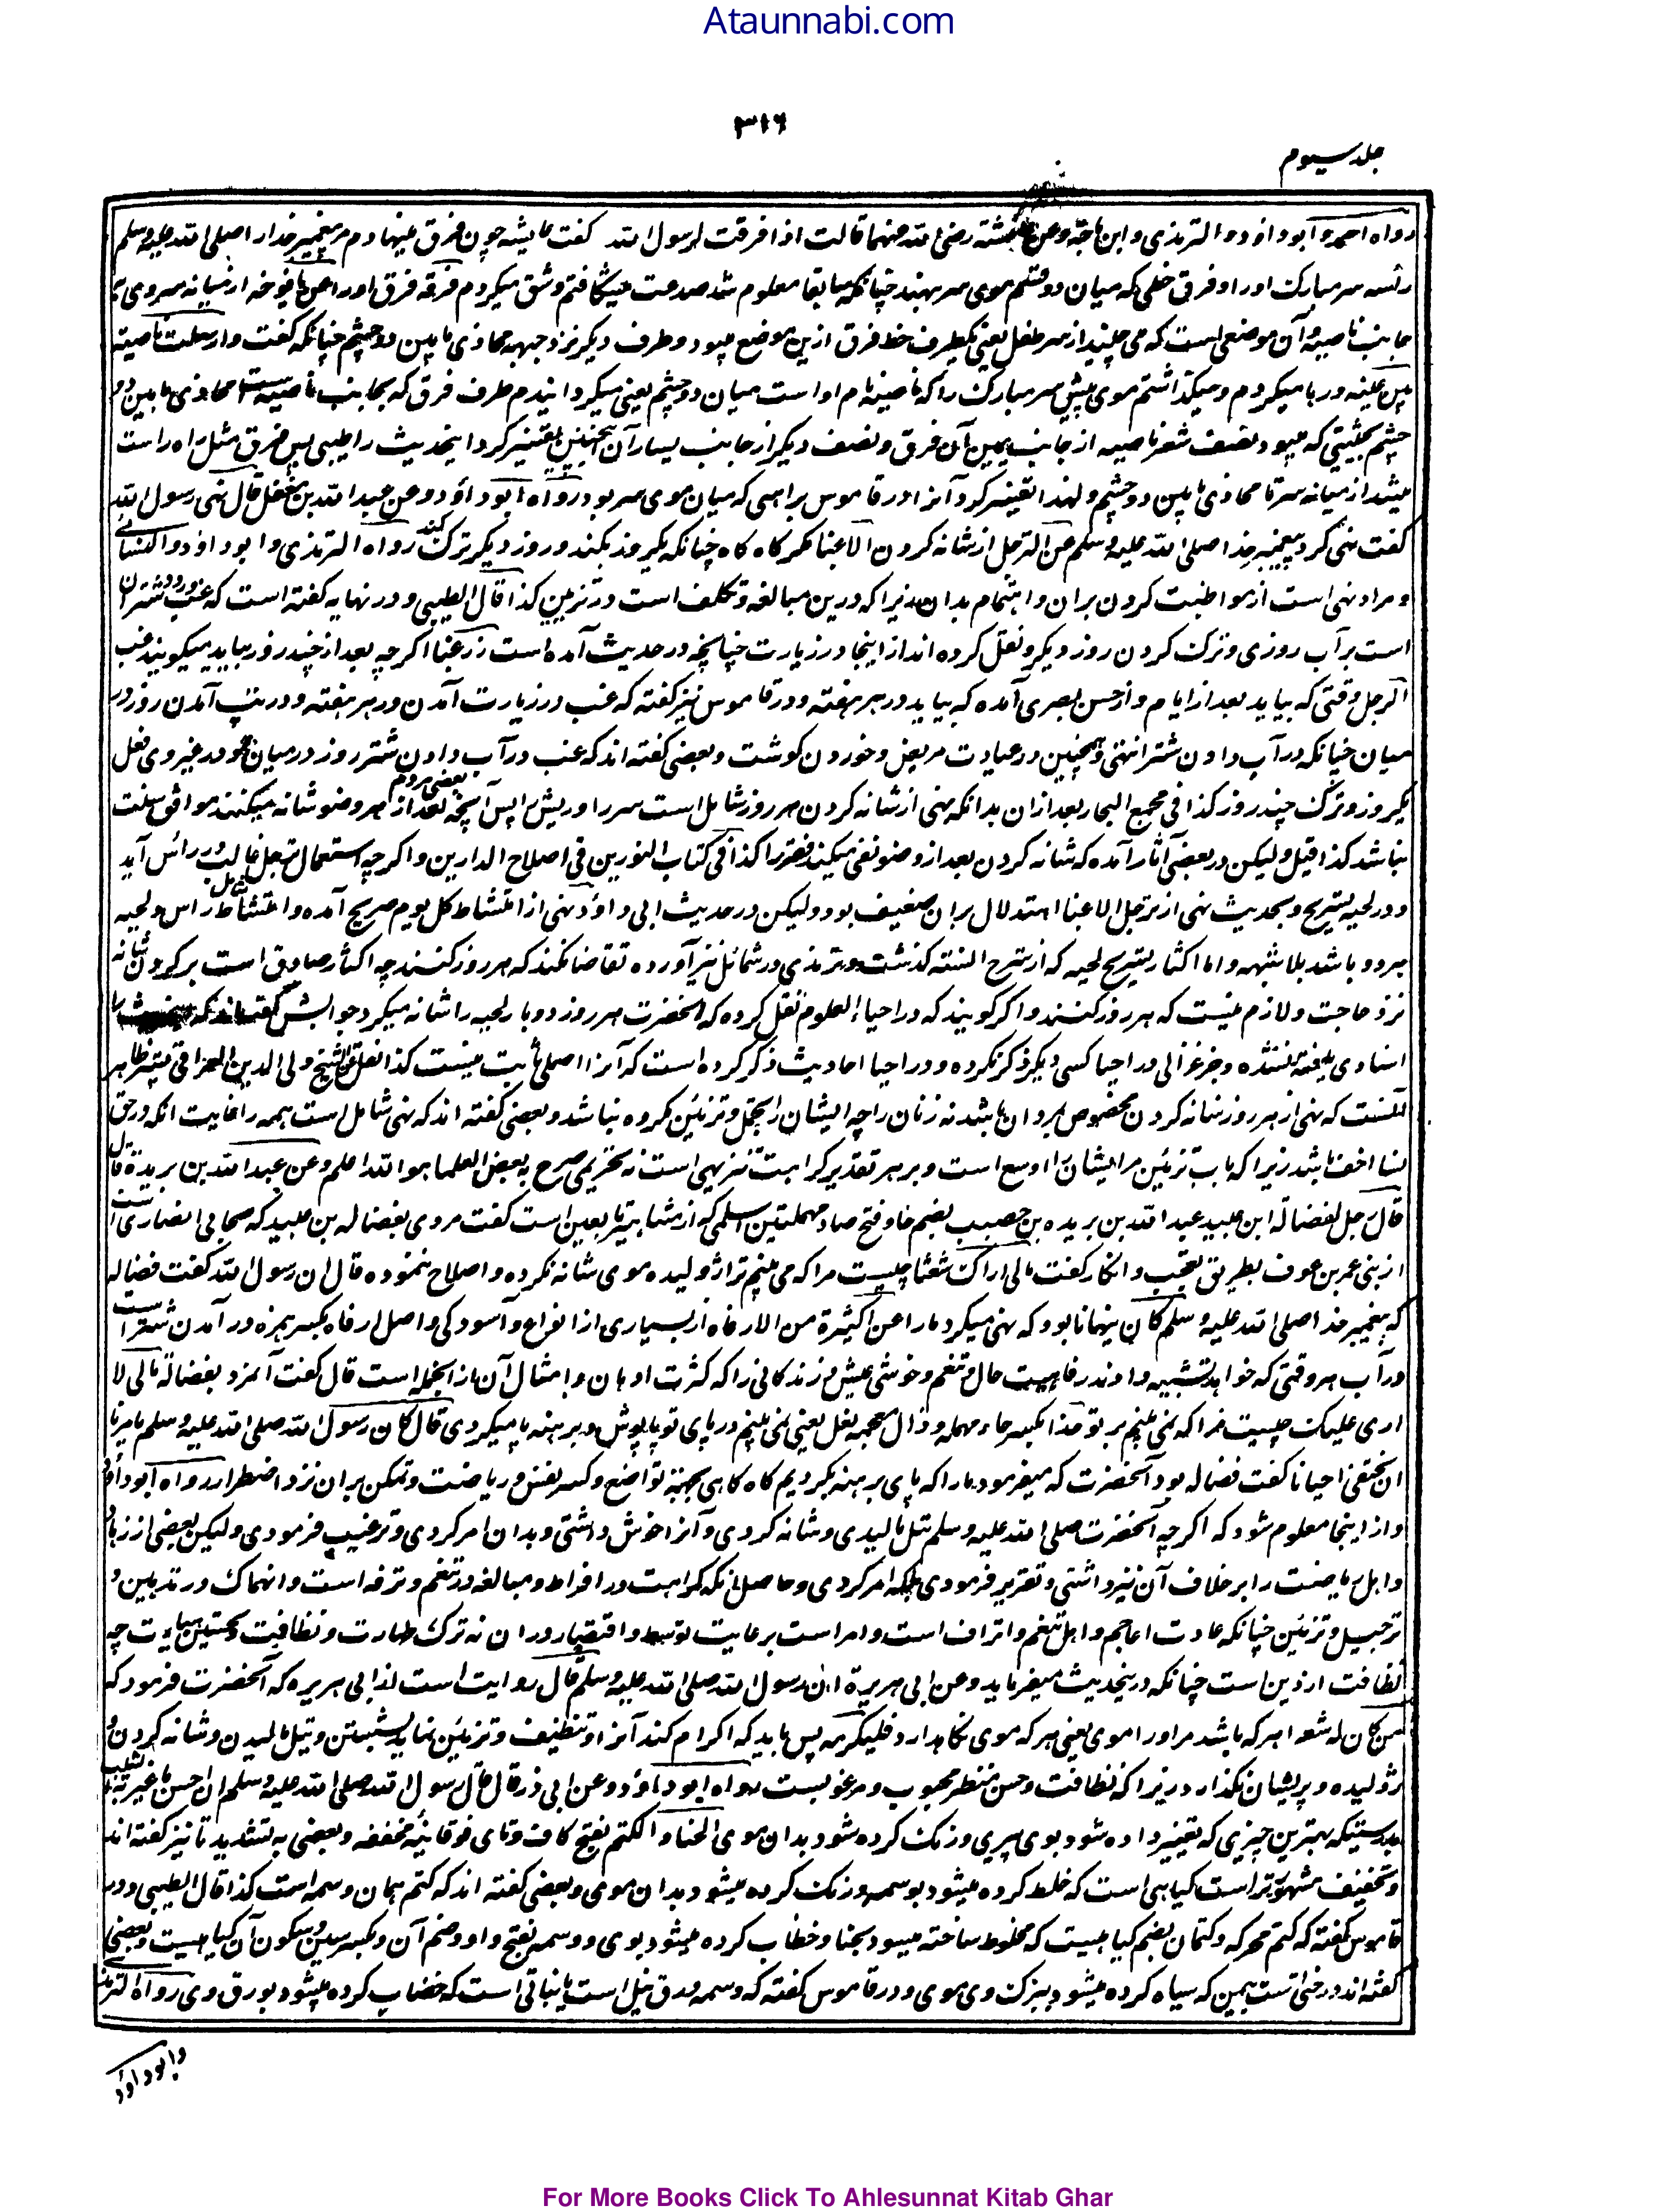 Ataunnabi.com
۳۱۶
جلد سیوم
رواه احمد و ابو داؤد و الترمذی و ابن ماجة وعن عائشة رضی الله عنها قالت اذا فرقت لرسول الله گفت عایشه چون فرق مینهادم مر پیغمبر خدا را صلی الله علیه وسلم
راسه سر مبارک او را و فرق خطی که میان دو قسم موی سر نهند چنانکه سابقا معلوم شد صدعت میشگافتم و شق میکردم فرقه فرق او را عن یافوخه از میانه سر وی تا
جانب ناصیه و آن موضعی است که می جنبد از سر طفل یعنی یکطرف خط فرق ازین موضع میبود و طرف دیگر نزد جبهه محاذی مابین دو چشم چنانکه گفت وارسلت ناصیته
بین عینیه و رها میکردم و میگذاشتم موی پیش سر مبارک را که ناصیه نام او است میان دو چشم یعنی میگردانیدم طرف فرق که بجانب ناصیه است محاذی مابین دو
چشم بحیثیتی که میبود نصف شعر ناصیه از جانب یمین آن فرق و نصف دیگر از جانب یسار آن همچنین تفسیر کرد اینحدیث را طیبی پس فرق مثل راه راست
میشد از میانه سر تا محاذی مابین دو چشم و لهذا تفسیر کرد آنرا در قاموس براهی که میان موی سر بود رواه ابو داؤد وعن عبد الله بن مغفل قال نهی رسول الله
گفت نهی کرد پیغمبر خدا صلی الله علیه وسلم عن الترجل از شانه کردن الا غبا مگر گاه گاه چنانکه یکروز بکند و روز دیگر ترک کند رواه الترمذی و ابو داؤد و النسائی
و مراد نهی است از مواظبت کردن بران و اهتمام بدان زیرا که درین مبالغه و تکلف است در تزیین کذا قال الطیبی و در نهایه گفته است که غب ورود شتران
است بر آب روزی و ترک کردن روز دیگر و نقل کرده اند از اینجا در زیارت چنانچه در حدیث آمده است زر غبا اگر چه بعد از چند روز بیاید میگویند غب
الرجل وقتی که بیاید بعد از ایام و از حسن بصری آمده که بیاید در هر هفته و در قاموس نیز گفته که غب در زیارت آمدن در هر هفته و در تب آمدن روز در
میان چنانکه در آب دادن شتر انتهی و همچنین در عیادت مریض و خوردن گوشت و بعضی گفته اند که غب در آب دادن شتر روز در میان بود و در غیر وی فعل
یکروز و ترک چند روز کذا فی مجمع البحار بعد ازان بدانکه نهی از شانه کردن هر روز شامل است سر را و ریش را پس آنچه بعضی مردم بعد از هر وضو شانه میکنند موافق سنت
نباشد کذا قیل و لیکن در بعضی آثار آمده که شانه کردن بعد از وضو نفی میکند فقر را کذا فی کتاب النورین فی اصلاح الدارین و اگر چه استعمال ترجل غالب در راس آید
و در لحیه تسریح و بحدیث نهی از ترجل الا غبا استدلال بران ضعیف بود و لیکن در حدیث ابی داؤد نهی از امتشاط کل یوم صریح آمده و امتشاط شامل راس و لحیه
هر دو باشد بلا شبهه و اما اکثار تسریح لحیه که از شرح السنة گذشت و ترمذی در شمائل نیز آورده تقاضا نکند که هر روز کنند چه اکثار صادق است بر کردن شانه
نزد حاجت و لازم نیست که هر روز کنند و اگر گویند که در احیاء العلوم نقل کرده که آنحضرت هر روز دو بار لحیه را شانه میکرد جوابش گفته اند که
اسنادی یافته نشده و جز غزالی در احیا کسی دیگر ذکر نکرده و در احیا احادیث ذکر کرده است که آنرا اصلی ثابت نیست کذا نقل عن الشیخ ولی الدین العراقی و نیز ظاهر
آنست که نهی از هر روز شانه کردن مخصوص بمردان باشد نه زنان را چه ایشان را تجمل و تزئین مکروه نباشد و بعضی گفته اند که نهی شامل است همه را غایت آنکه در حق
نسا اخف باشد زیرا که باب تزئین مر ایشان را اوسع است و بر هر تقدیر کراهت تنزیهی است نه تحریمی صرح به بعض العلما و الله اعلم وعن عبد الله بن بریدة قال
قال رجل لفضالة ابن عبید عبد الله بن بریده بن حصیب بضم حا و فتح صاد مهملتین اسلمی که از مشاهیر تابعین است گفت مردی بفضاله بن عبید که صحابی انصاری است
از بنی عمر بن عوف بطریق تعجب و انکار گفت مالی اراک شعثا چیست مرا که می بینم ترا ژولیده موی شانه نکرده و اصلاح ننموده قال ان رسول الله گفت فضاله
که پیغمبر خدا صلی الله علیه وسلم کان ینهانا بود که نهی میکرد ما را عن کثیرة من الارفاه از بسیاری از انواع آسودگی و اصل ارفاه بکسر همزه در آمدن شتر است
در آب هر وقتی که خواهد تشبیه دادند رفاهیت حال و تنعم و خوشی عیش و زندگانی را که کثرت ادهان و امثال آن نیز از انجمله است قال گفت آنمرد بفضالة مالی لا
اری علیک چیست مرا که نمی بینم بر تو حذا بکسر حاء مهمله و ذال معجمه نعل یعنی نمی بینم در پای تو پاپوش و برهنه پا میگردی قال کان رسول الله صلی الله علیه وسلم یامرنا
ان نحتفی احیانا گفت فضاله بود آنحضرت که میفرمود ما را که پای برهنه بگردیم گاه گاهی بجهة تواضع و کسر نفس و ریاضت و تمکن بران نزد اضطرار رواه ابو داؤد
و از اینجا معلوم شود که اگر چه آنحضرت صلی الله علیه وسلم تیل مالیدی و شانه کردی و آنرا خوش داشتی و بدان امر کردی و ترغیب فرمودی و لیکن بعضی از زهاد
و اهل ریاضت را بر خلاف آن نیز داشتی و تقریر فرمودی بلکه امر کردی و حاصل آنکه کراهت در افراط و مبالغه در تنعم و ترفه است و انهماک در تدهین و
ترجیل و تزئین چنانکه عادت اعاجم و اهل تنعم و اتراف است و امر است برعایت توسط و اقتصار دران نه ترک طهارت و نظافت و تحسین هیات چه
نظافت از دین است چنانکه در اینحدیث میفرماید وعن ابی هریرة ان رسول الله صلی الله علیه وسلم قال روایت است از ابی هریره که آنحضرت فرمود که
من کان له شعر هر که باشد مر او را موی یعنی هر که موی نگاهدارد فلیکرمه پس باید که اکرام کند آنرا و تنظیف و تزئین نماید بشستن و تیل مالیدن و شانه کردن و
ژولیده و پریشان نگذارد زیرا که نظافت و حسن منظر محبوب و مرغوبست رواه ابو داؤد وعن ابی ذر قال قال رسول الله صلی الله علیه وسلم ان احسن ما غیر به الشیب
بدرستیکه بهترین چیزی که تغییر داده شود بوی پیری و رنگ کرده شود بدان موی الحناء و الکتم بفتح کاف و تای فوقانیه مخففه و بعضی به تشدید تا نیز گفته اند
و تخفیف مشهورتر است گیاهی است که خلط کرده میشود بوسمه و رنگ کرده میشود بدان موی و بعضی گفته اند که کتم همان وسمه است کذا قال الطیبی و در
قاموس گفته که کتم محرکه و کتمان بضم گیاهیست که مخلوط ساخته میشود بحنا و خضاب کرده میشود بوی و وسمه بفتح واو و ضم آن و بکسر سین و سکون آن گیاهیست و بعضی
گفته اند درختی است بیمن که سیاه کرده میشود ببرگ وی موی و در قاموس گفته که وسمه ورق نیل است یا نباتی است که خضاب کرده میشود بورق وی رواه الترمذی
وابو داؤد
For More Books Click To Ahlesunnat Kitab Ghar